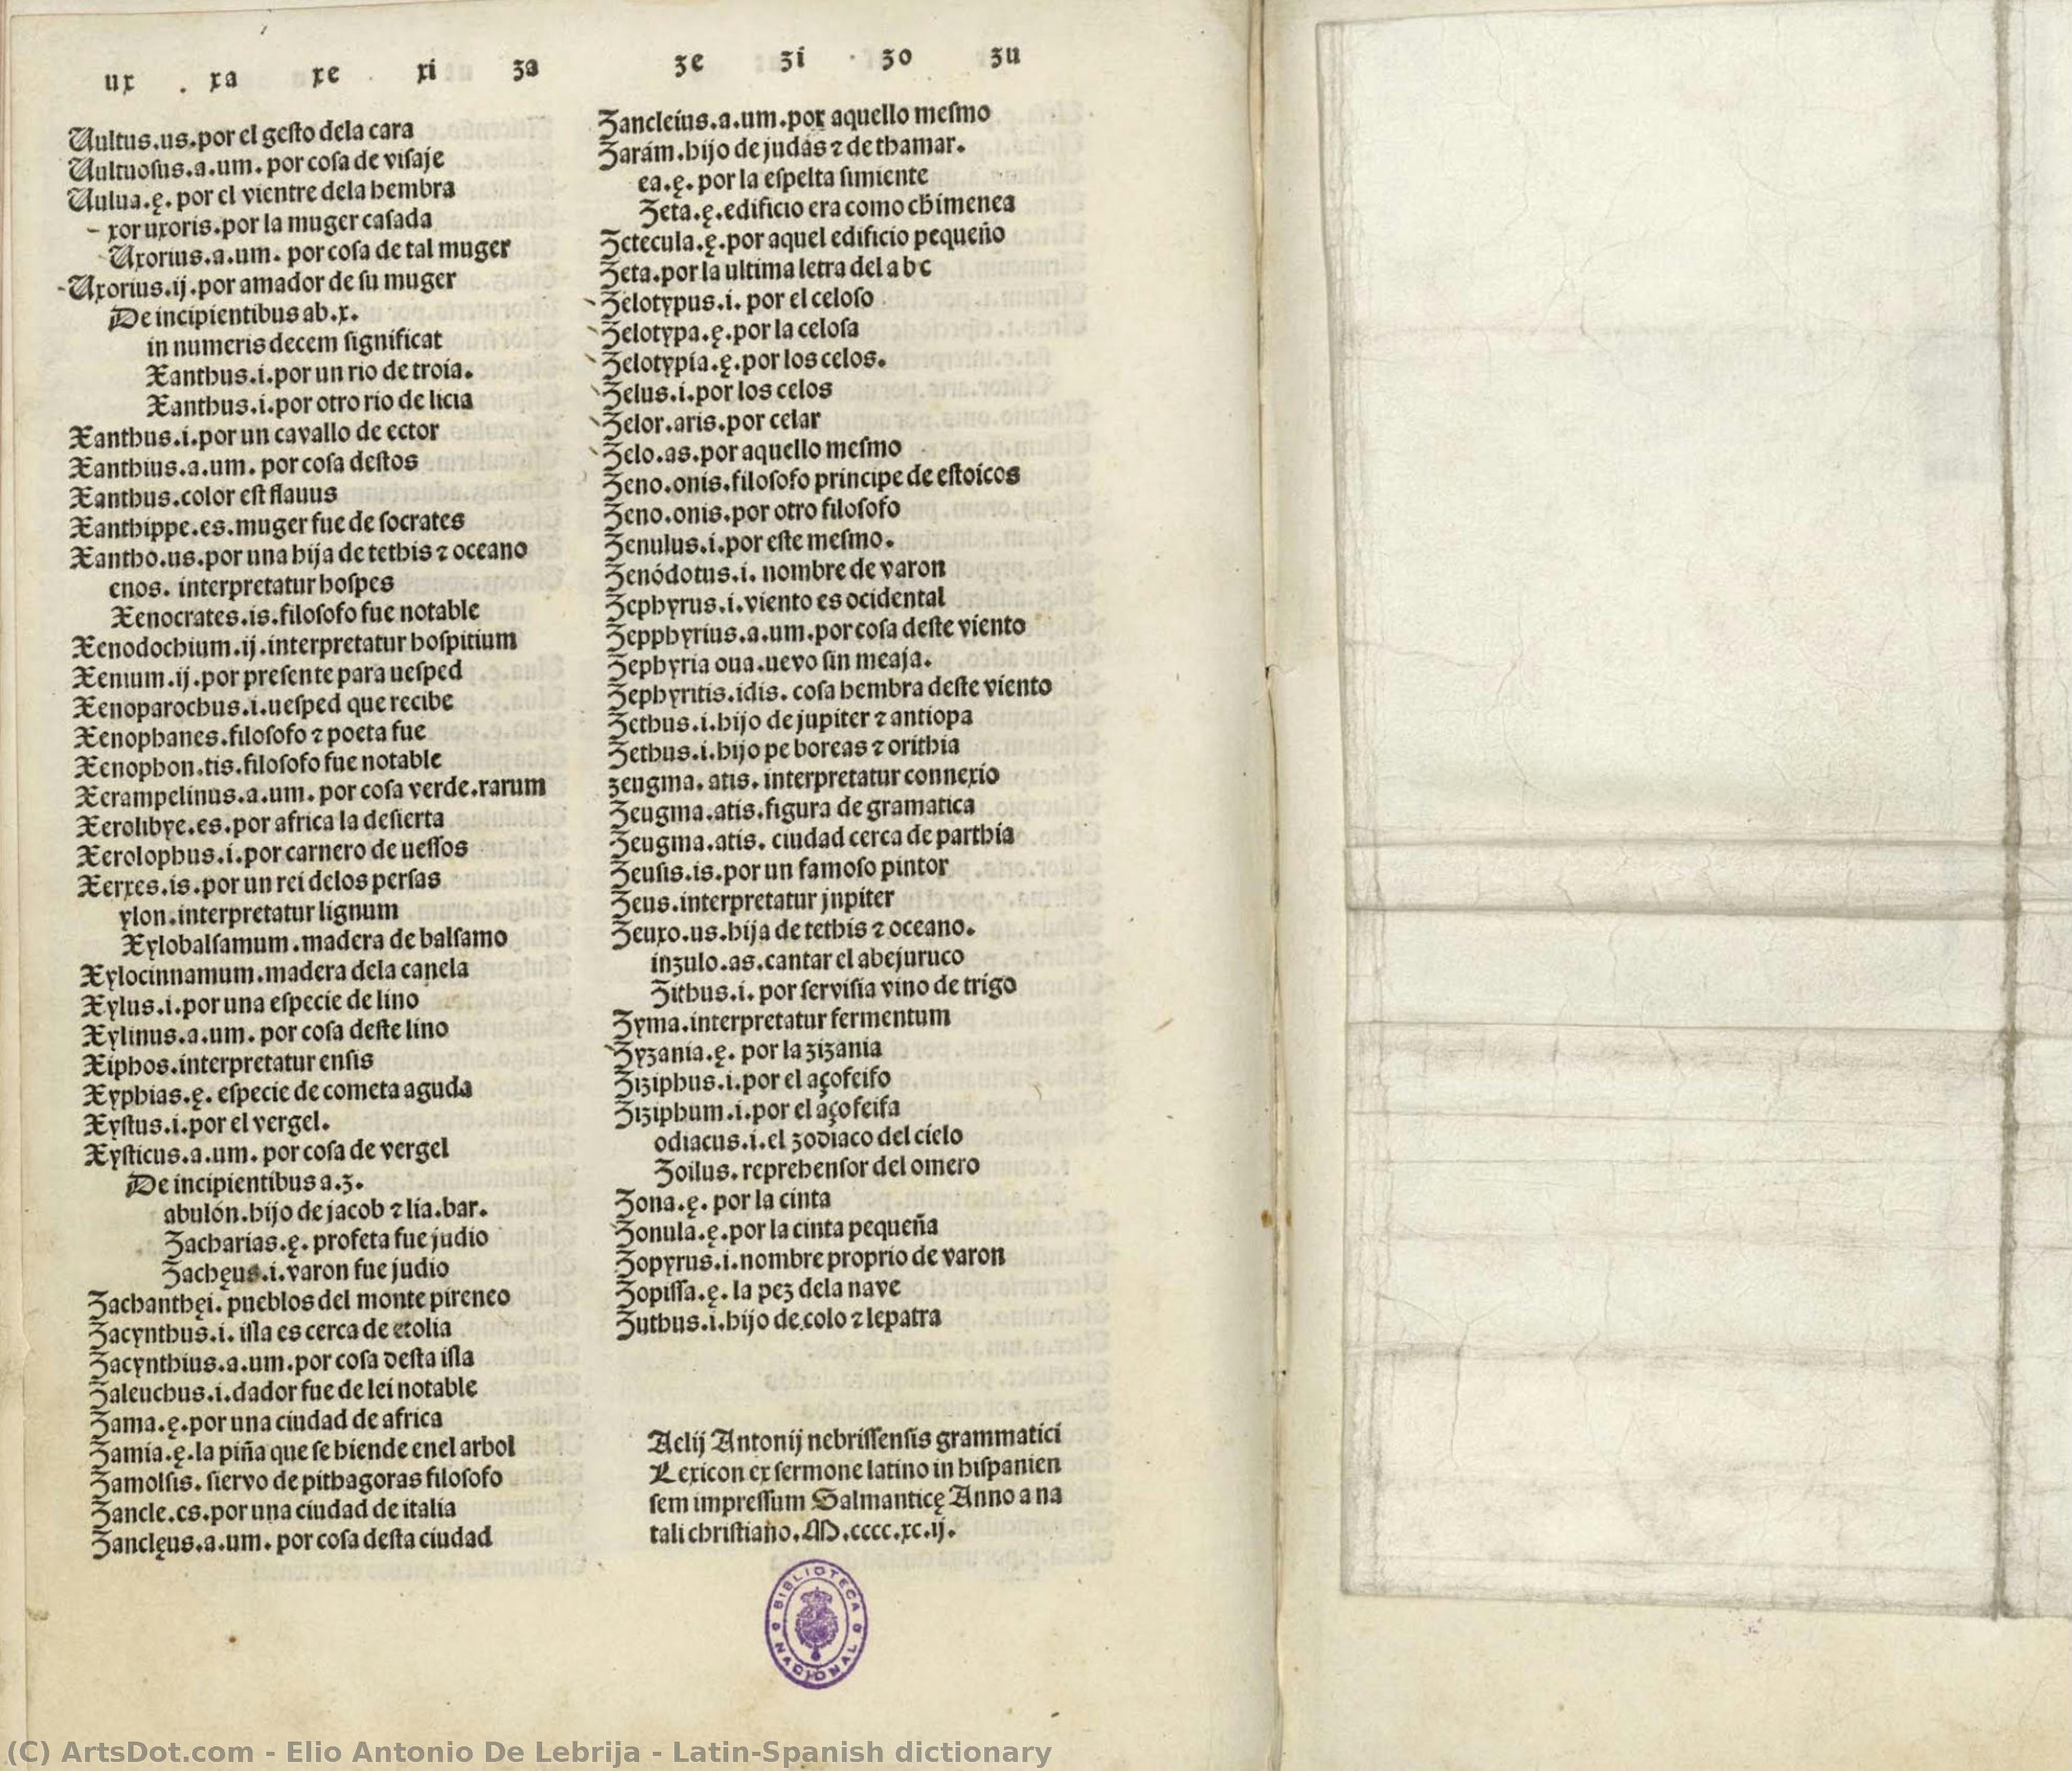 ux . xa xe . xi za
Uultus.us.por el gesto dela cara
Uultuosus.a.um. por cosa de visaje
Uulua.ę. por el vientre dela hembra
xor uxoris.por la muger casada
Uxorius.a.um. por cosa de tal muger
Uxorius.ij.por amador de su muger
De incipientibus ab.x.
in numeris decem significat
Xanthus.i.por un rio de troia.
Xanthus.i.por otro rio de licia
Xanthus.i.por un cavallo de ector
Xanthius.a.um. por cosa destos
Xanthus.color est flauus
Xanthippe.es.muger fue de socrates
Xantho.us.por una hija de tethis ⁊ oceano
enos. interpretatur hospes
Xenocrates.is.filosofo fue notable
Xenodochium.ij.interpretatur hospitium
Xenium.ij.por presente para uesped
Xenoparochus.i.uesped que recibe
Xenophanes.filosofo ⁊ poeta fue
Xenophon.tis.filosofo fue notable
Xerampelinus.a.um. por cosa verde.rarum
Xerolibye.es.por africa la desierta
Xerolophus.i.por carnero de uessos
Xerxes.is.por un rei delos persas
ylon.interpretatur lignum
Xylobalsamum.madera de balsamo
Xylocinnamum.madera dela canela
Xylus.i.por una especie de lino
Xylinus.a.um. por cosa deste lino
Xiphos.interpretatur ensis
Xyphias.ę. especie de cometa aguda
Xystus.i.por el vergel.
Xysticus.a.um. por cosa de vergel
De incipientibus a.z.
abulón.hijo de jacob ⁊ lia.bar.
Zacharias.ę. profeta fue judio
Zachęus.i.varon fue judio
Zachanthęi. pueblos del monte pireneo
Zacynthus.i. isla es cerca de etolia
Zacynthius.a.um.por cosa desta isla
Zaleuchus.i.dador fue de lei notable
Zama.ę.por una ciudad de africa
Zamia.ę.la piña que se hiende enel arbol
Zamolsis. siervo de pithagoras filosofo
Zancle.es.por una ciudad de italia
Zanclęus.a.um. por cosa desta ciudad
ze zi . zo zu
Zancleius.a.um.por aquello mesmo
Zarám.hijo de judas ⁊ de thamar.
ea.ę. por la espelta simiente
Zeta.ę.edificio era como chimenea
Zetecula.ę.por aquel edificio pequeño
Zeta.por la ultima letra del a b c
Zelotypus.i. por el celoso
Zelotypa.ę.por la celosa
Zelotypia.ę.por los celos.
Zelus.i.por los celos
Zelor.aris.por celar
Zelo.as.por aquello mesmo
Zeno.onis.filosofo principe de estoicos
Zeno.onis.por otro filosofo
Zenulus.i.por este mesmo.
Zenódotus.i. nombre de varon
Zephyrus.i.viento es ocidental
Zepphyrius.a.um.por cosa deste viento
Zephyria oua.uevo sin meaja.
Zephyritis.idis. cosa hembra deste viento
Zethus.i.hijo de jupiter ⁊ antiopa
Zethus.i.hijo pe boreas ⁊ orithia
zeugma. atis. interpretatur connexio
Zeugma.atis.figura de gramatica
Zeugma.atis. ciudad cerca de parthia
Zeusis.is.por un famoso pintor
Zeus.interpretatur jupiter
Zeuxo.us.hija de tethis ⁊ oceano.
inzulo.as.cantar el abejuruco
Zithus.i. por servisia vino de trigo
Zyma.interpretatur fermentum
Zyzania.ę. por la zizania
Ziziphus.i.por el açofeifo
Ziziphum.i.por el açofeifa
odiacus.i.el zodiaco del cielo
Zoilus. reprehensor del omero
Zona.ę. por la cinta
Zonula.ę.por la cinta pequeña
Zopyrus.i.nombre proprio de varon
Zopissa.ę. la pez dela nave
Zuthus.i.hijo de.colo ⁊ lepatra
Aelij Antonij nebrissensis grammatici
Lexicon ex sermone latino in hispanien
sem impressum Salmanticę Anno a na
tali christiano.M.cccc.xc.ij.
BIBLIOTECA NACIONAL
(C) ArtsDot.com - Elio Antonio De Lebrija - Latin-Spanish dictionary